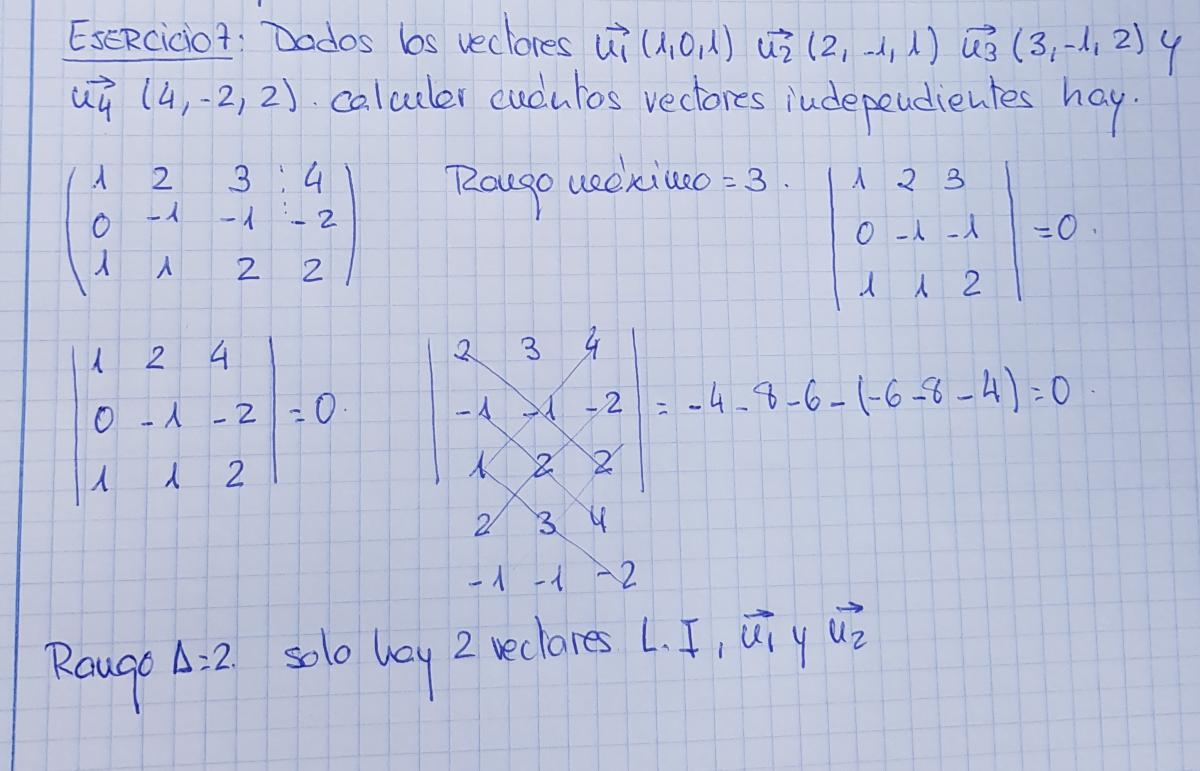 EJERCICIO 7: Dados los vectores u₁⃗ (1,0,1) u₂⃗ (2, -1, 1) u₃⃗ (3, -1, 2) y
u₄⃗ (4, -2, 2). calcular cuántos vectores independientes hay.
( 1 2 3 ⋮ 4 ) Rango máximo = 3. | 1 2 3 |
( 0 -1 -1 ⋮ -2 ) | 0 -1 -1 | = 0.
( 1 1 2 2 ) | 1 1 2 |
| 1 2 4 | | 2 3 4 |
| 0 -1 -2 | = 0. | -1 -1 -2 | = -4 - 8 - 6 - (-6 - 8 - 4) = 0.
| 1 1 2 | | 1 2 2 |
2 3 4
-1 -1 -2
Rango A = 2. solo hay 2 vectores L.I, u₁⃗ y u₂⃗